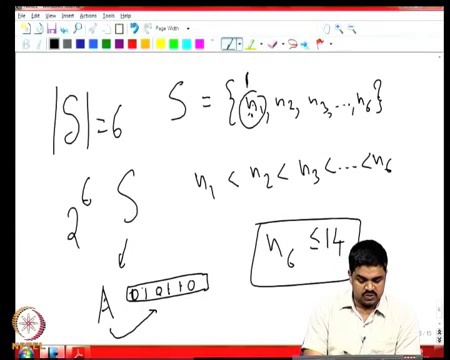 File Edit View Insert Actions Tools Help
Page Width
|S| = 6
1
S = {n1, n2, n3, ..., n6}
n1 < n2 < n3 < ... < n6
2^6 S
n6 ≤ 14
A 010110